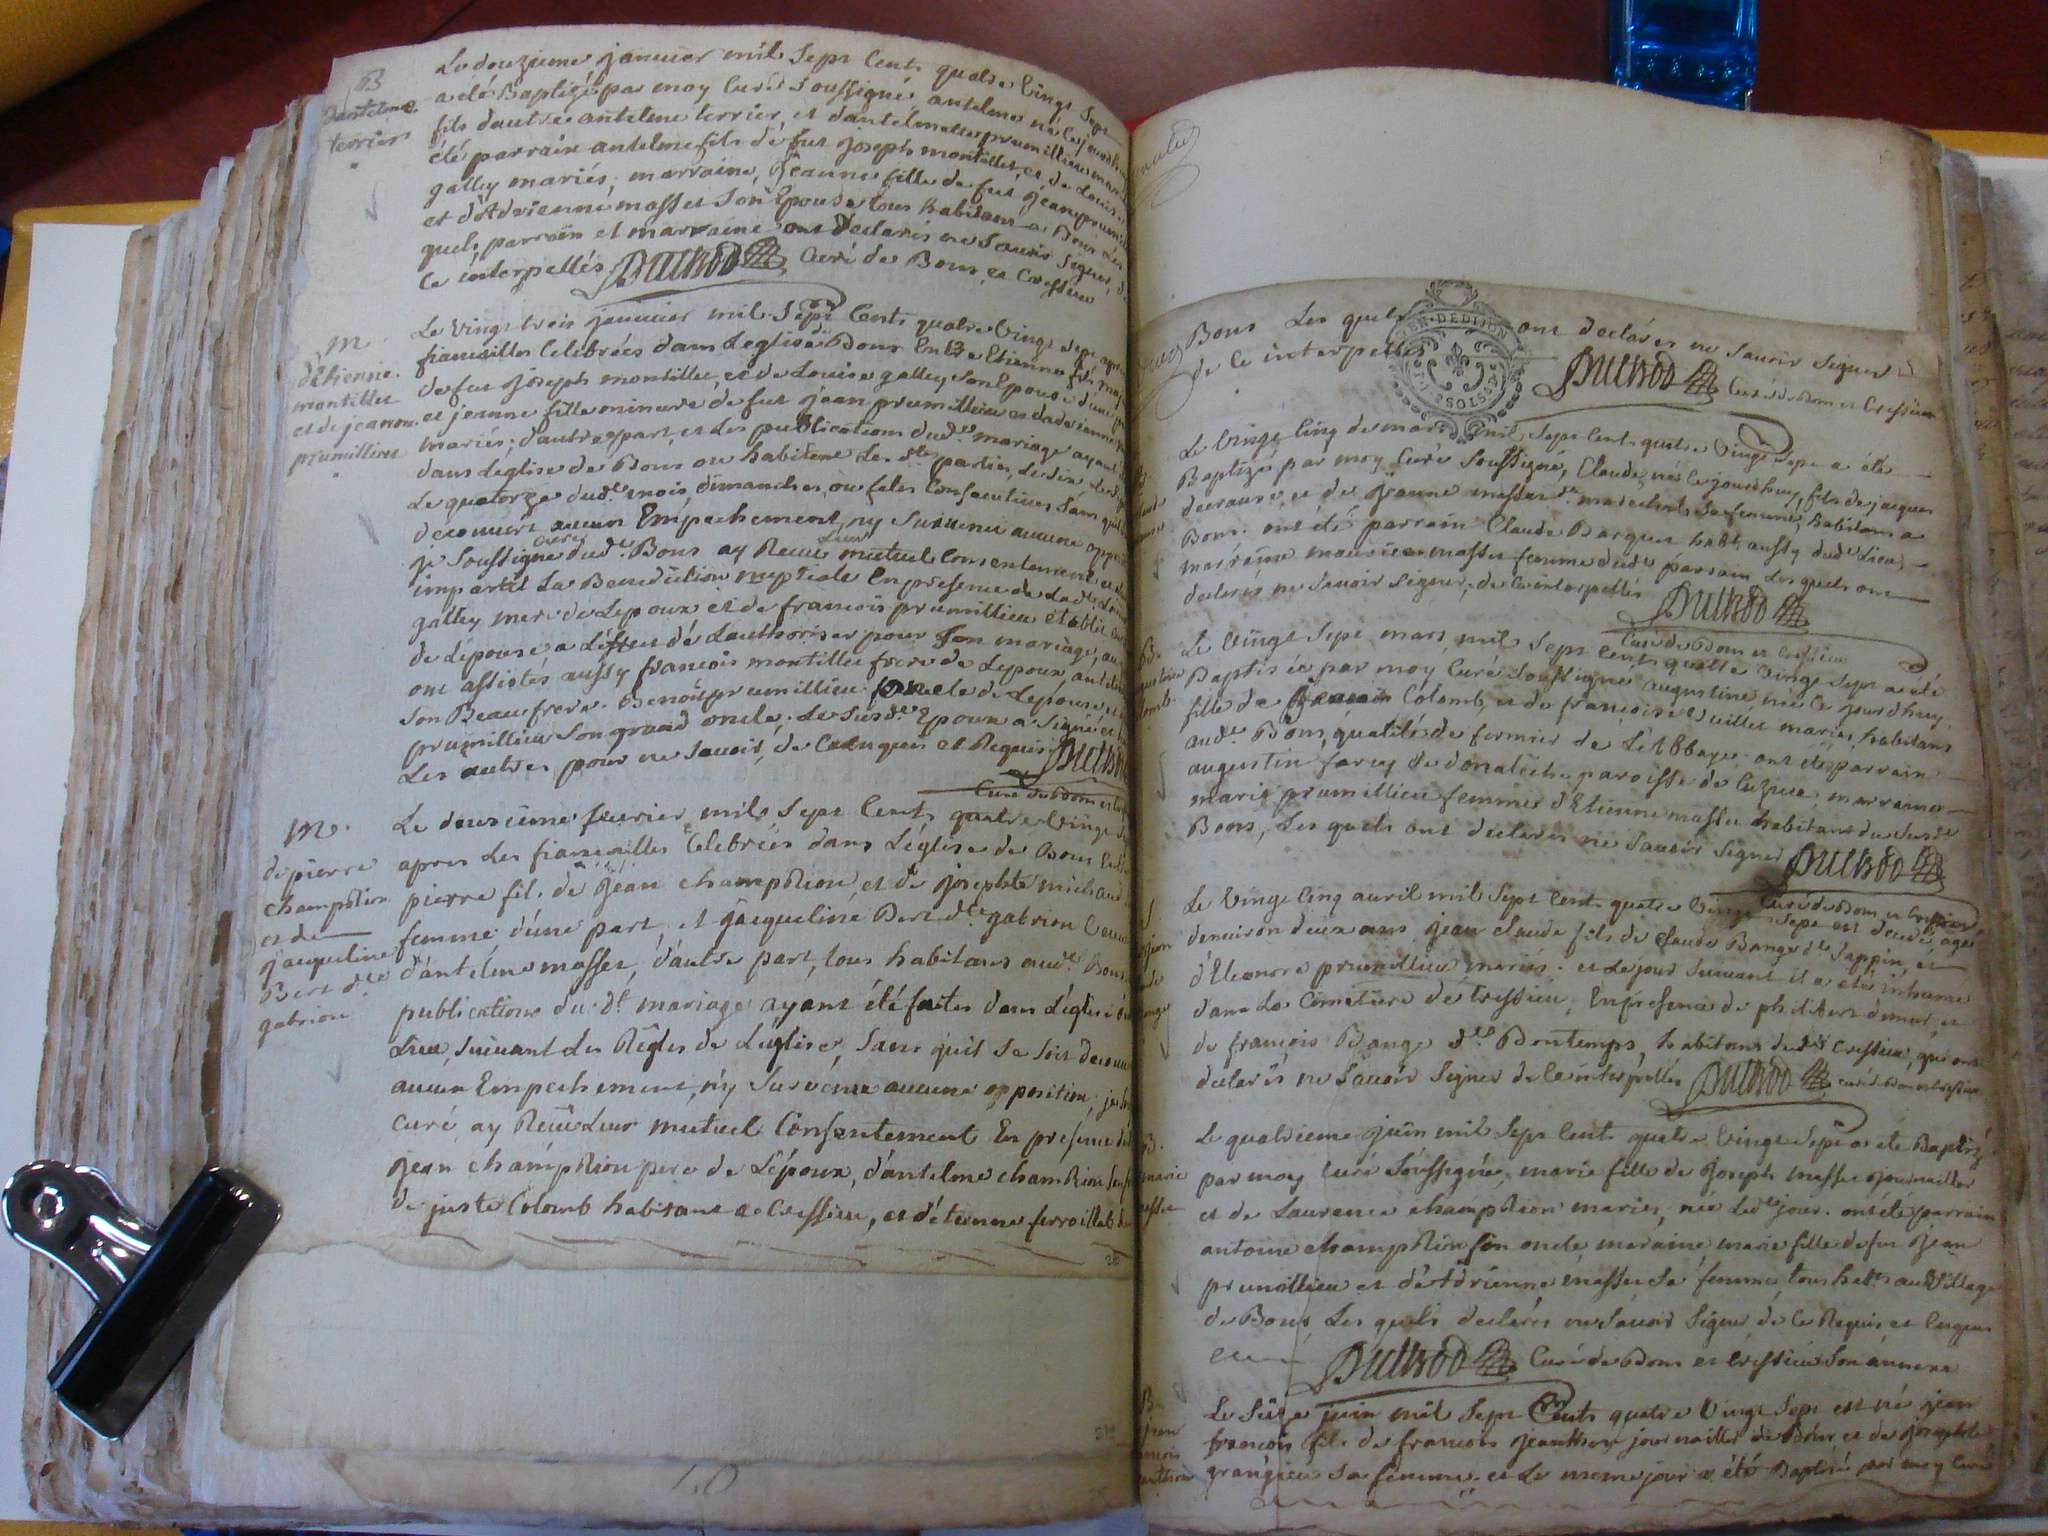 B
d'antelme
terrier
Le douzieme janvier mil Sept Cent quatre Vingt Sept
a été Baptizé par moy Curé Soussigné, antelme né ce jourdhuy
fils d'autre antelme terrier, et d'antelmette prumillieu mar
été parrain antelme fils de fut joseph montillet, et de Louise
galley mariés, marraine, Jeanne fille de fut Jean prumil
et d'Adrienne masset Son Epouse tous habitans a Bons Les
quels parrain et marraine ont Declarés ne Savoir Signer, de
Ce interpellés Dutrod Curé de Bons et Cressieu
M
d'Etienne
montillet
et de jeanne
prumillieu
Le Vingt trois janvier mil Sept Cent quatre Vingt Sept après
fiancailles Celebrées dans L'eglise de Bons Entre Etienne fils maj
de fut joseph montillet, et de Louise galley Son Epouse d'une p
et jeanne fille mineure de fut jean prumillieu et d'adrienne
mariés; d'autre part, et Les publications dud.t mariage ayant
dans L'eglise de Bons ou habitent Les d.tes parties, Le Six Le
Le quatorze dud.t mois, dimanches, ou fetes Consecutives Sans quil
decouvert aucun Empechement, ny Survenu aucune oppo
je Soussigné Curé dud.t Bons ay Receu Leur mutuel Consentement, et
imparti La Benediction nuptiale En presence de Lad.te
galley mere de L'epoux et de francois prumillieu établi
de L'epouse, a L'effet de L'authoriser pour Son mariage, au
ont assistés aussy francois montillet frere de L'epoux, antelme
Son Beau frere. Benoit prumillieu oncle de L'epouse et
prumillieu Son grand oncle. Le Susd.t Epoux a Signé et
Les autres pour ne Savoir, de Ce Enquis et Requis Dutrod
Curé de Bons et Cress
M
de pierre
chamption
et de
jacqueline
Bert d.te
gabrion
Le deuxieme fevrier mil Sept Cent quatre Vingt
apres Les fiancailles Celebrées dans L'eglise de Bons Entre
pierre fils de Jean chamption, et de josephte michaud
femme d'une part, et Jacqueline Bert d.te gabrion Veuve
d'antelme masset, d'autre part, tous habitans aud.t Bons,
publications du d.t mariage ayant été faites dans L'eglise du
Lieu, suivant Les Regles de L'eglise, Sans quil Se Soit decouv
aucun Empechement, ny Survenu aucune opposition, je Sous
Curé ay Receu Leur mutuel Consentement En presence de
Jean chamption pere de L'époux, d'antelme chamption
de juste Colomb habitant a Cressieu, et d'etienne
Bons Les quels ont declarés ne Savoir Signer
de Ce interpellés Dutrod Curé de Bons et Cressieu
DE DIJON
SOLS
Le Vingt Cinq de mars mil Sept Cent quatre Vingt Sept a été
Baptizé par moy Curé Soussigné, Claude, né Ce jourdhuy, fils de jacques
et de Jeanne masset d.te marechal Sa femme, habitans a
Bons. ont été parrain Claude Barquet habt. aussy dud.t Lieu,
marraine mauricea masset femme dud.t parrain Les quels ont
declarés ne Savoir Signer, de Ce interpellés Dutrod
Curé de Bons et Cressieu
Le Vingt Sept mars mil Sept Cent quatre Vingt Sept a été
Baptisée par moy Curé Soussigné augustine, née Ce jourdhuy
fille de Colomb, et de françoise mariés, habitans
aud.t Bons, qualité de fermier de L'Abbaye. ont été parrain
augustin de paroisse de marraine
marie prumillieu femme d'Etienne masset habitans du Susd.t
Bons, Les quels ont declarés ne Savoir Signer Dutrod
Curé de Bons et Cressieu
Le Vingt Cinq avril mil Sept Cent quatre Vingt Sept est decedé, agé
d'environ deux ans, jean Claude fils de Claude Bange d.t Sappin, et
d'Eleonore prumillieu mariés. et Le jour Suivant il a été inhumé
dans Le Cimetiere de Cressieu, En presence de philibert et
de francois Bange d.t Bontemps, habitans dud.t Cressieu, qui ont
declarés ne Savoir Signer de Ce interpellés Dutrod curé de Bons et Cressieu
B.
marie
masset
Le quatrieme juin mil Sept Cent quatre Vingt Sept a été Baptizé
par moy Curé Soussigné, marie fille de Joseph masset journaillier
et de Laurence chamption mariés, née Led.t jour. ont été parrain
antoine chamption Son oncle, maraine marie fille de fut Jean
prumillieu et d'Adrienne masset Sa femme, tous hab.ts au Village
de Bons Les quels declarés ne Savoir Signer de Ce Requis et Enquis
Dutrod Curé de Bons et Cressieu Son annexe
B
jean
Le Seize juin mil Sept Cent quatre Vingt Sept est né jean
francois fils de francois Jeanthon journaillier de Bons et de josephte
grangieu Sa femme. et Le meme jour a été Baptisé par moy Curé